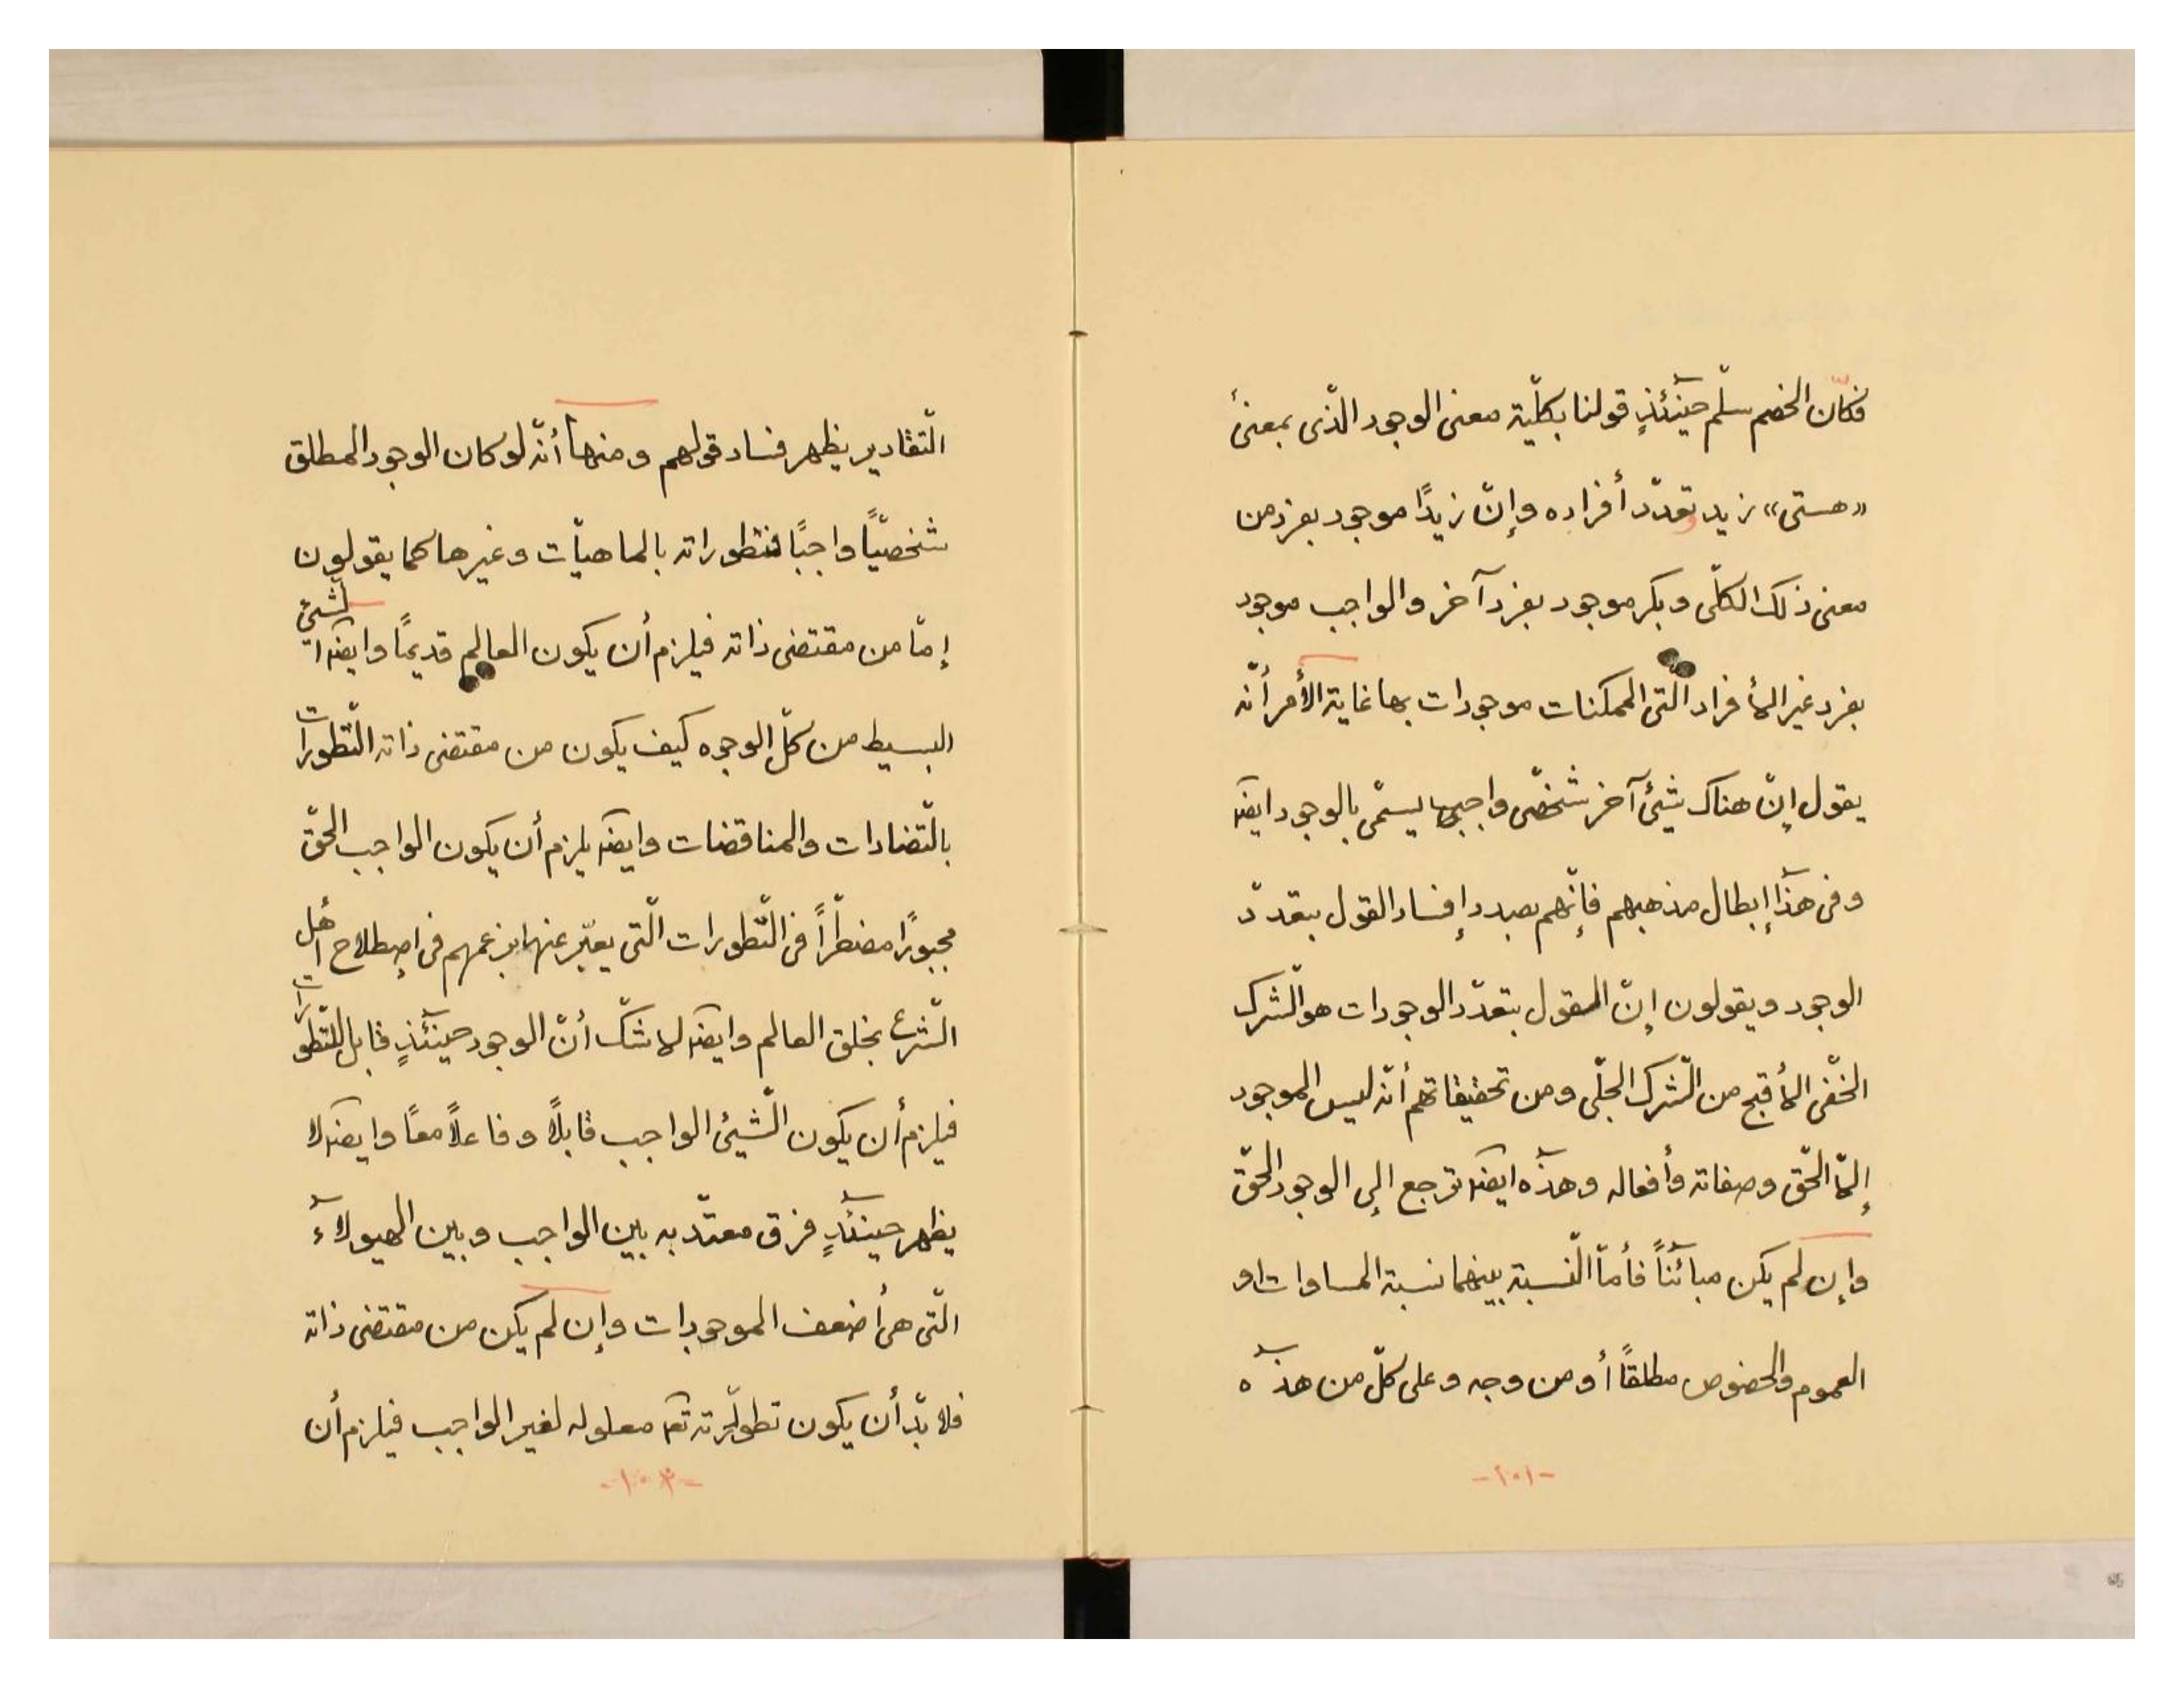 فكأنّ الخصم سلّم حينئذٍ قولنا بكلّية معنى الوجود الّذى بمعنىٔ
«هستى» زيد وتعدّد أفراده وإنّ زيدًا موجود بفرد من
معنى ذلك الكلّى وبكر موجود بفرد آخر والواجب موجود
بفرد غير الأفراد الّتى الممكنات موجودات بها غاية الأمر أنّه
يقول إنّ هناك شيئ آخر شخصّى واجبى يسمّى بالوجود ايضًا
وفى هذا إبطال مذهبهم فإنّهم بصدد إفساد القول بتعدّد
الوجود ويقولون إنّ القول بتعدّد الوجودات هو الّشرك
الخّفى الأقبح من الّشرك الجلّى ومن تحقيقاتهم أنّه ليس الموجود
إلّا الحّق وصفاته وأفعاله وهذه ايضًا ترجع إلى الوجود الحّق
وإن لم يكن مبائنًا فأمّا الّنسبة بينهما نسبة المساوات او
العموم والخصوص مطلقًا أو من وجه وعلى كلّ من هذه
-١٠١-
الّتقادير يظهر فساد قولهم ومنها أنّه لو كان الوجود المطلق
شخصيّاً واجبًا فتطوراته بالماهيّات وغيرها كما يقولون
إمّا من مقتضى ذاته فيلزم أن يكون العالم قديمًا وايضًا الشيئ
البسيط من كلّ الوجوه كيف يكون من مقتضى ذاته الّتطورات
بالّتضادات والمناقضات وايضًا يلزم أن يكون الواجب الحّق
مجبورًا مضطرّاً فى الّتطورات الّتى يعبّر عنها بزعمهم فى إصطلاح أهل
الّشرع بخلق العالم وايضًا لاشكّ أنّ الوجود حينئذٍ قابل للّتطورات
فيلزم أن يكون الّشيئ الواجب قابلاً وفاعلاً معًا وايضًا لا
يظهر حينئذٍ فرق معتدّ به بين الواجب وبين الهيولاء
الّتى هى أضعف الموجودات وإن لم يكن من مقتضى ذاته
فلا بدّ أن يكون تطورّاته تعـ معلوله لغير الواجب فيلزم أن
-١٠٢-